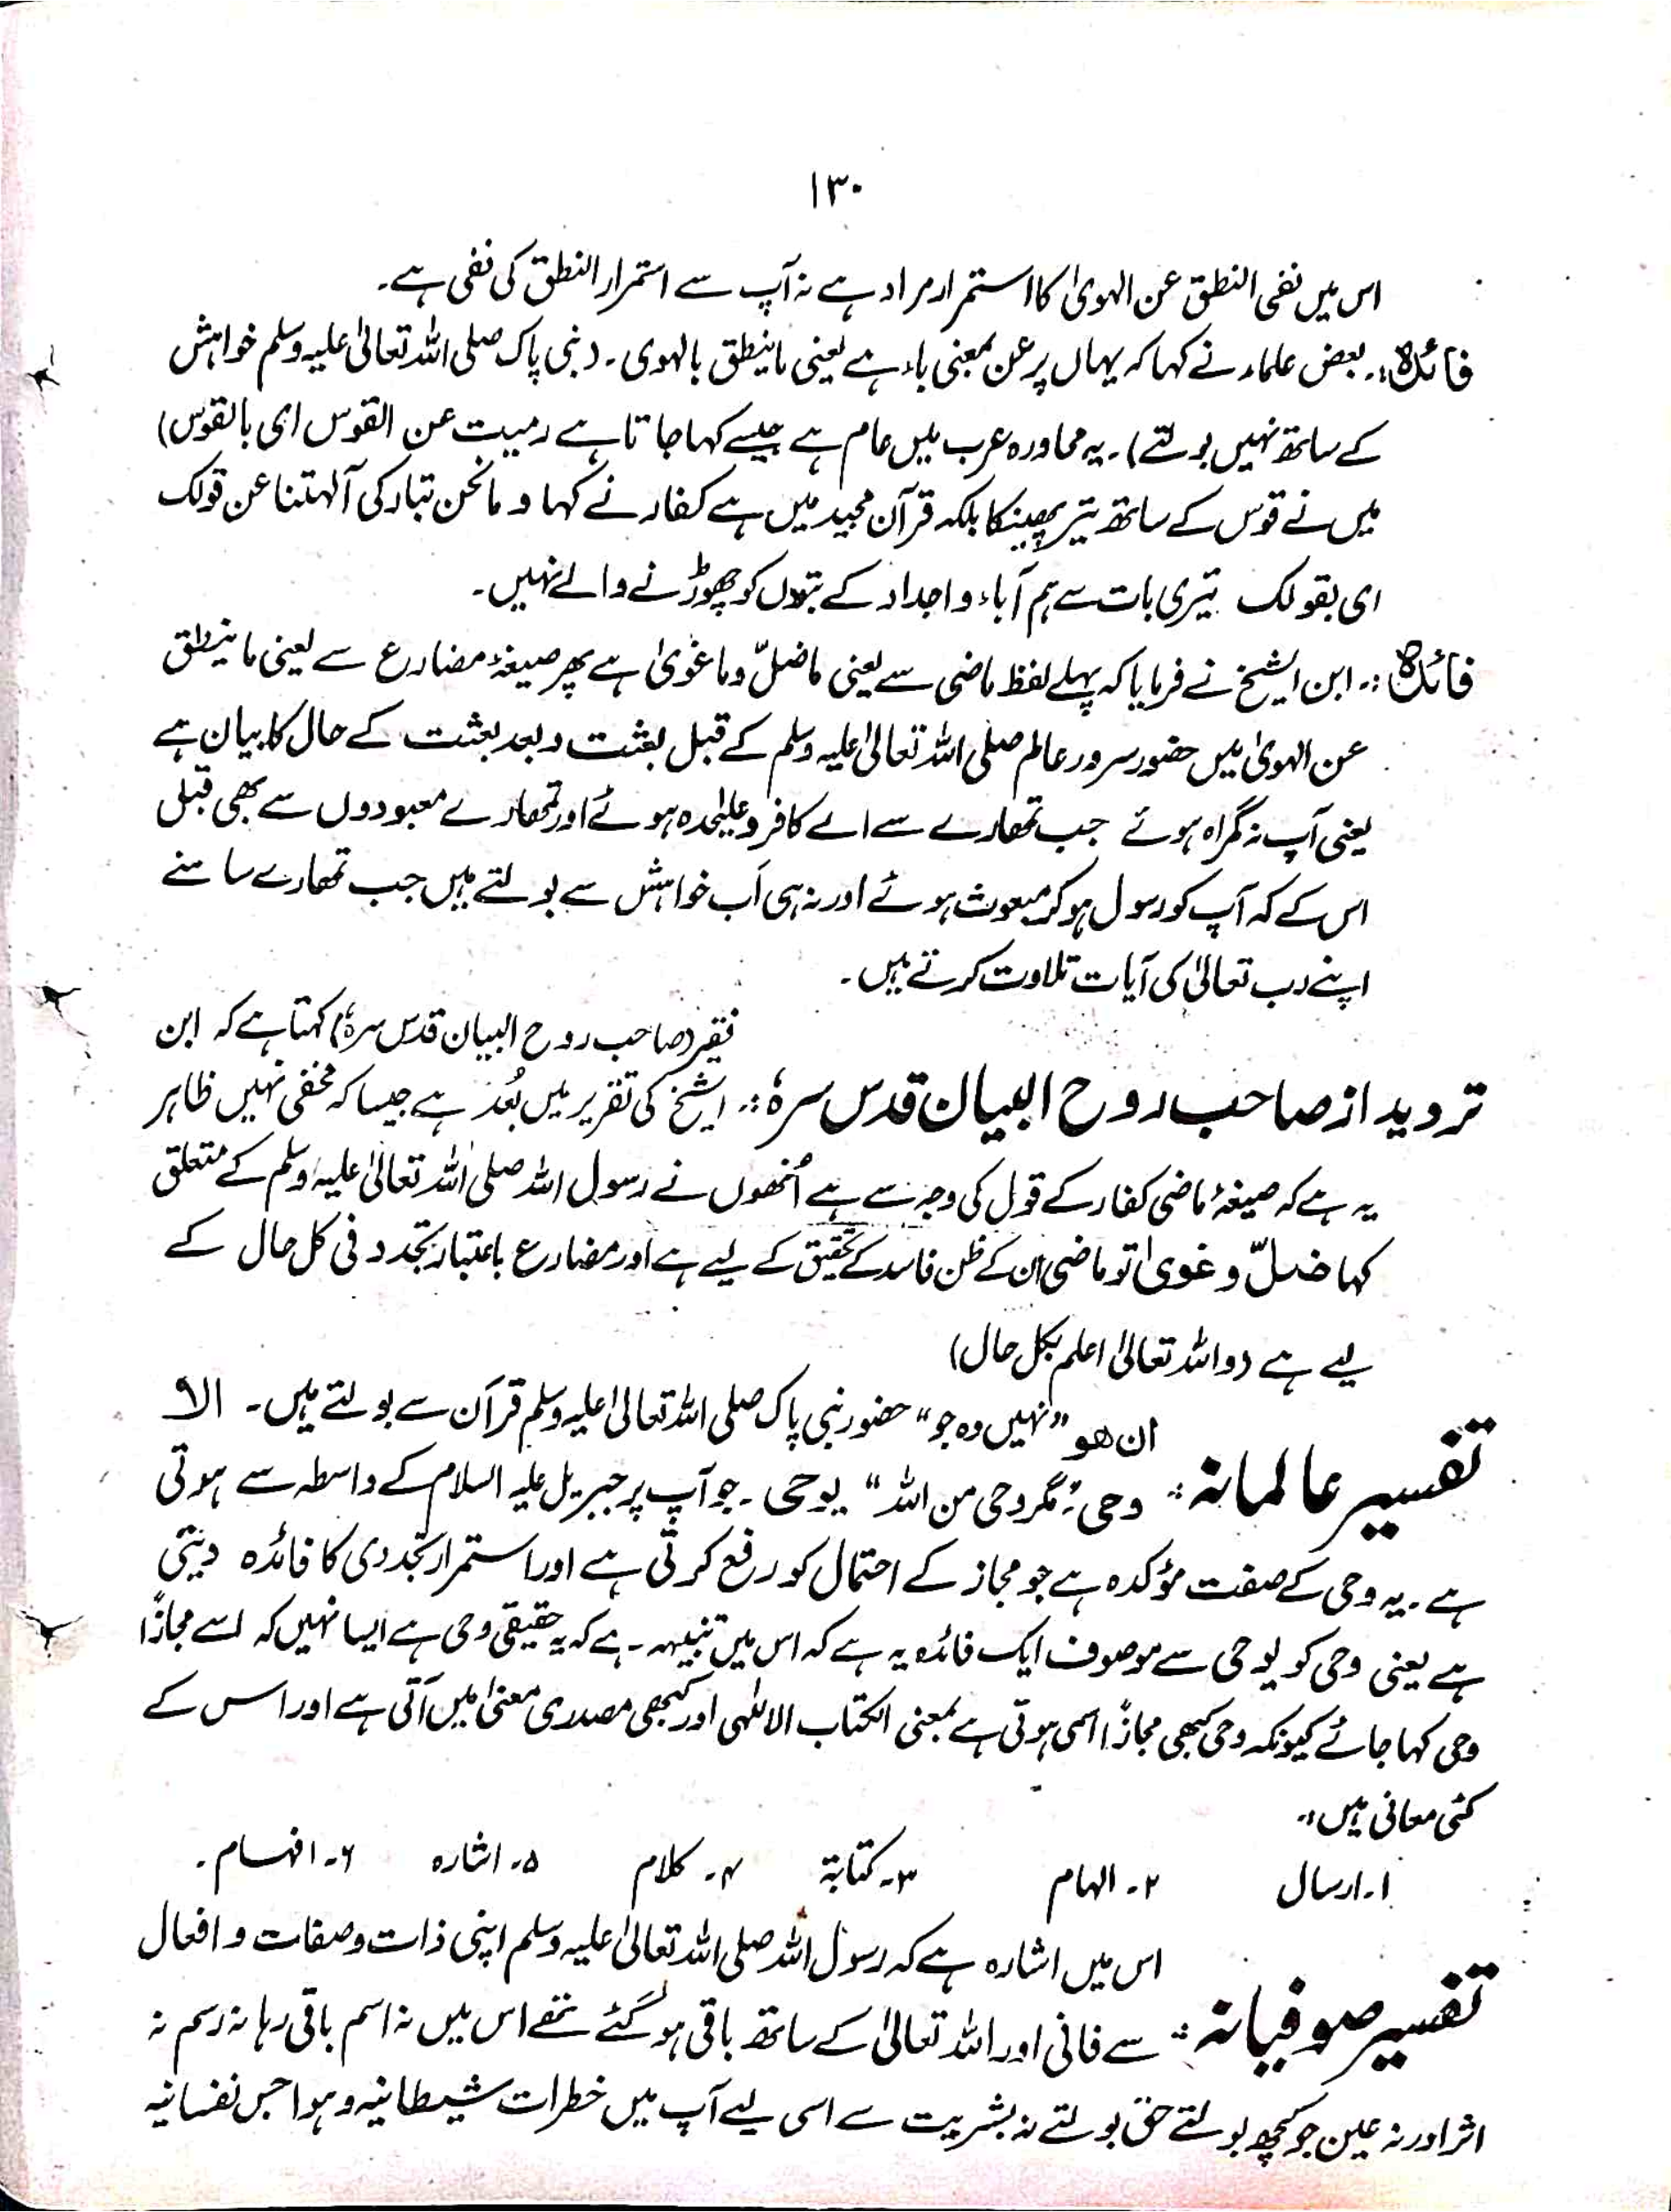 ۱۳۰
اس میں نفی النطق عن الہویٰ کا استمرار مراد ہے نہ آپ سے استمرار النطق کی نفی ہے۔
فائدہ:۔ بعض علماء نے کہا کہ یہاں پر عن بمعنی باء ہے یعنی ماینطق بالہوی۔ (نبی پاک صلی اللہ تعالیٰ علیہ وسلم خواہش
کے ساتھ نہیں بولتے)۔ یہ محاورہ عرب میں عام ہے جیسے کہا جاتا ہے رمیت عن القوس ای بالقوس)
میں نے قوس کے ساتھ تیر پھینکا بلکہ قرآن مجید میں ہے کفار نے کہا و مانحن بتارکی آلہتنا عن قولک
ای بقولک تیری بات سے ہم آباء و اجداد کے بتوں کو چھوڑنے والے نہیں۔
فائدہ:۔ ابن الشیخ نے فرمایا کہ پہلے لفظ ماضی سے یعنی ماضلّ وما غویٰ ہے پھر صیغۂ مضارع سے یعنی ماینطق
عن الہویٰ میں حضور سرور عالم صلی اللہ تعالیٰ علیہ وسلم کے قبل بعثت و بعد بعثت کے حال کا بیان ہے
یعنی آپ نہ گمراہ ہوئے جب تمھارے سے اے کافرو علیٰحدہ ہوئے اور تمھارے معبودوں سے بھی قبل
اس کے کہ آپ کو رسول ہو کر مبعوث ہوئے اور نہ ہی اَب خواہش سے بولتے ہیں جب تمھارے سامنے
اپنے رب تعالیٰ کی آیات تلاوت کرتے ہیں۔
فقیر (صاحب روح البیان قدس سرہٗ) کہتا ہے کہ ابن
تردید از صاحب روح البیان قدس سرہٗ:۔ الشیخ کی تقریر میں بُعد ہے جیسا کہ مخفی نہیں ظاہر
یہ ہے کہ صیغۂ ماضی کفار کے قول کی وجہ سے ہے اُنھوں نے رسول اللہ صلی اللہ تعالیٰ علیہ وسلم کے متعلق
کہا ضلّ و غویٰ تو ماضی ان کے ظن فاسد کے تحقیق کے لیے ہے اور مضارع باعتبار تجدد فی کل حال کے
لیے ہے (واللہ تعالیٰ اعلم بکل حال)
ان ھو "نہیں وہ جو" حضور نبی پاک صلی اللہ تعالیٰ علیہ وسلم قرآن سے بولتے ہیں۔ الا
تفسیر عالمانہ:۔ وحی "مگر وحی من اللہ" یوحی۔ جو آپ پر جبریل علیہ السلام کے واسطہ سے ہوتی
ہے۔ یہ وحی کے صفت مؤکدہ ہے جو مجاز کے احتمال کو رفع کرتی ہے اور استمرار تجددی کا فائدہ دیتی
ہے یعنی وحی کو یوحی سے موصوف ایک فائدہ یہ ہے کہ اس میں تنبیہہ۔ ہے کہ یہ حقیقی وحی ہے ایسا نہیں کہ اسے مجازًا
وحی کہا جائے کیونکہ وحی کبھی مجازًا اسمی ہوتی ہے بمعنی الکتاب الالٰہی اور کبھی مصدری معنیٰ میں آتی ہے اور اس کے
کئی معانی ہیں:۔
۱۔ ارسال ۲۔ الہام ۳۔ کتابۃ ۴۔ کلام ۵۔ اشارہ ۶۔ افہام۔
اس میں اشارہ ہے کہ رسول اللہ صلی اللہ تعالیٰ علیہ وسلم اپنی ذات و صفات و افعال
تفسیر صوفیانہ:۔ سے فانی اور اللہ تعالیٰ کے ساتھ باقی ہو گئے تھے اس میں نہ اسم باقی رہا نہ رسم نہ
اثر اور نہ عین جو کچھ بولتے حق بولتے نہ بشریت سے اسی لیے آپ میں خطرات شیطانیہ و ہواجس نفسانیہ